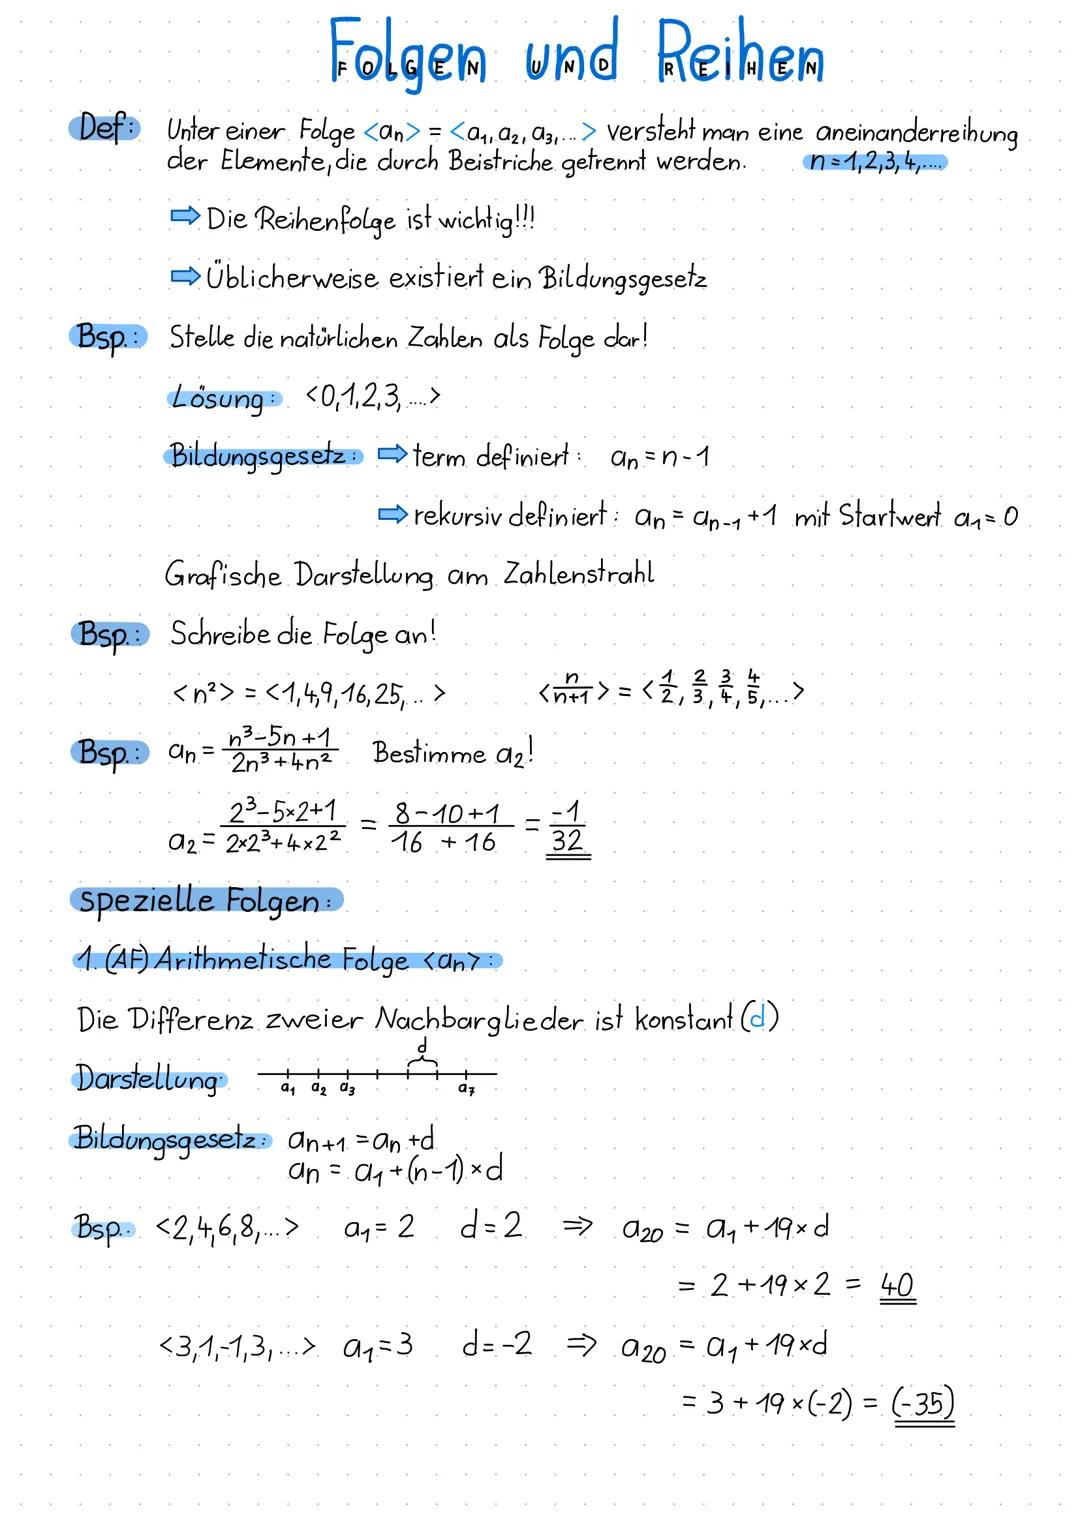 Folgen und Reihen
FOLGEN UND REIHEN
Def: Unter einer Folge <an> = <a₁, a₂, a₃,...> versteht man eine aneinanderreihung
der Elemente, die durch Beistriche getrennt werden. n = 1,2,3,4,....
⇨ Die Reihenfolge ist wichtig!!!
⇨ Üblicherweise existiert ein Bildungsgesetz
Bsp.: Stelle die natürlichen Zahlen als Folge dar!
Lösung: <0,1,2,3,....>
Bildungsgesetz: ⇨ term definiert: aₙ = n-1
⇨ rekursiv definiert: aₙ = aₙ₋₁ +1 mit Startwert a₁= 0
Grafische Darstellung am Zahlenstrahl
Bsp.: Schreibe die Folge an!
<n²> = <1,4,9,16,25,..> <n/n+1> = <1/2, 2/3, 3/4, 4/5,...>
Bsp.: aₙ = n³-5n+1 / 2n³+4n² Bestimme a₂!
a₂ = 2³-5×2+1 / 2×2³+4×2² = 8-10+1 / 16 + 16 = -1/32
spezielle Folgen:
1. (AF) Arithmetische Folge <aₙ>:
Die Differenz zweier Nachbarglieder ist konstant (d)
d
Darstellung: a₁ a₂ a₃ a₇
Bildungsgesetz: aₙ₊₁ = aₙ +d
aₙ = a₁ + (n-1) × d
Bsp.: <2,4,6,8,...> a₁ = 2 d = 2 ⇒ a₂₀ = a₁ + 19× d
= 2 + 19 × 2 = 40
<3,1,-1,3,...> a₁ = 3 d = -2 ⇒ a₂₀ = a₁ + 19 ×d
= 3 + 19 ×(-2) = (-35)